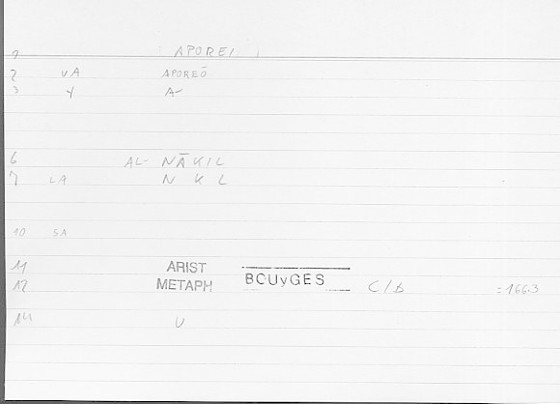 1 APOREI
2 VA APOREŌ
3 Y A
6 AL- NĀKIL
7 LA N K L
10 SA
11 ARIST
12 METAPH BOUyGES C/b =166.3
14 U